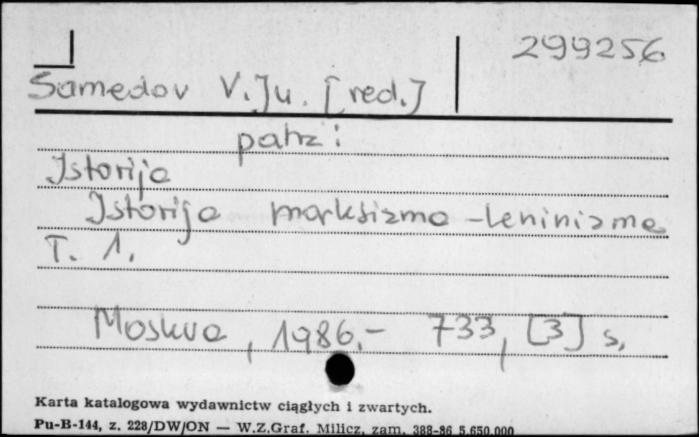 299256
Samedov V. Ju. [red.]
patrz:
Istorija
Istorija marksizma-leninizma
T. 1.
Moskva, 1986.- 733, [3] s.
Karta katalogowa wydawnictw ciągłych i zwartych.
Pu-B-144, z. 228/DW/ON — W.Z.Graf. Milicz, zam. 388-86 5.650.000